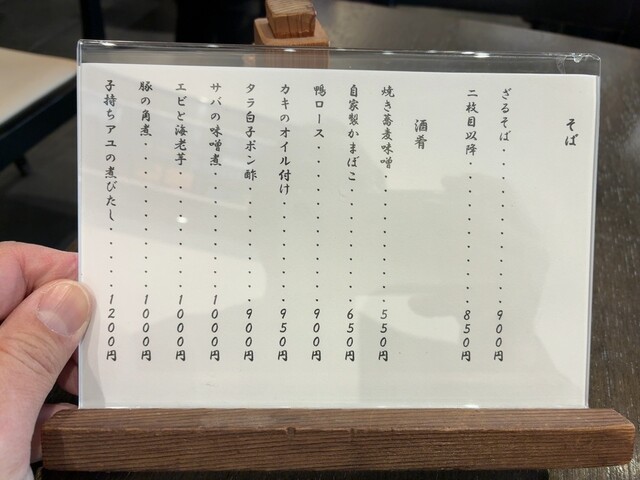 そば
ざるそば・・・・・・・・・・900円
二枚目以降・・・・・・・・・850円
酒肴
焼き蕎麦味噌・・・・・・・・550円
自家製かまぼこ・・・・・・・650円
鴨ロース・・・・・・・・・・900円
カキのオイル付け・・・・・・950円
タラ白子ポン酢・・・・・・・900円
サバの味噌煮・・・・・・・・1000円
エビと海老芋・・・・・・・・1000円
豚の角煮・・・・・・・・・・1000円
子持ちアユの煮びたし・・・・1200円